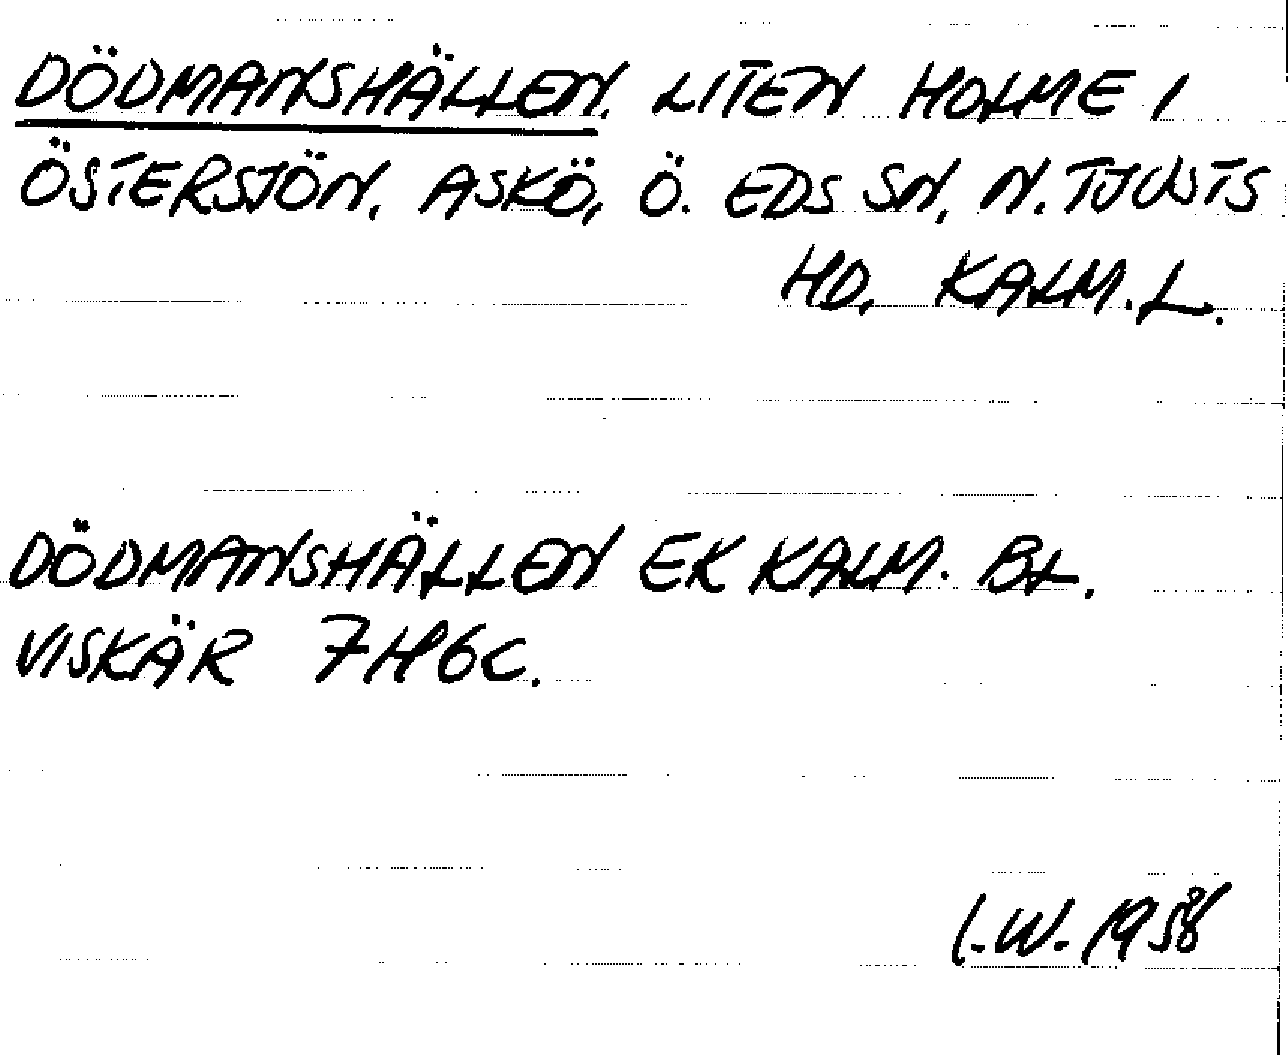 DÖDMANSHÄLLEN. LITEN HOLME I
ÖSTERSJÖN. ASKÖ, Ö. EDS SN, N. TJUSTS
HD. KALM. L.
DÖDMANSHÄLLEN EK KALM. BL.
VISKÄR 7H6C.
I.W.